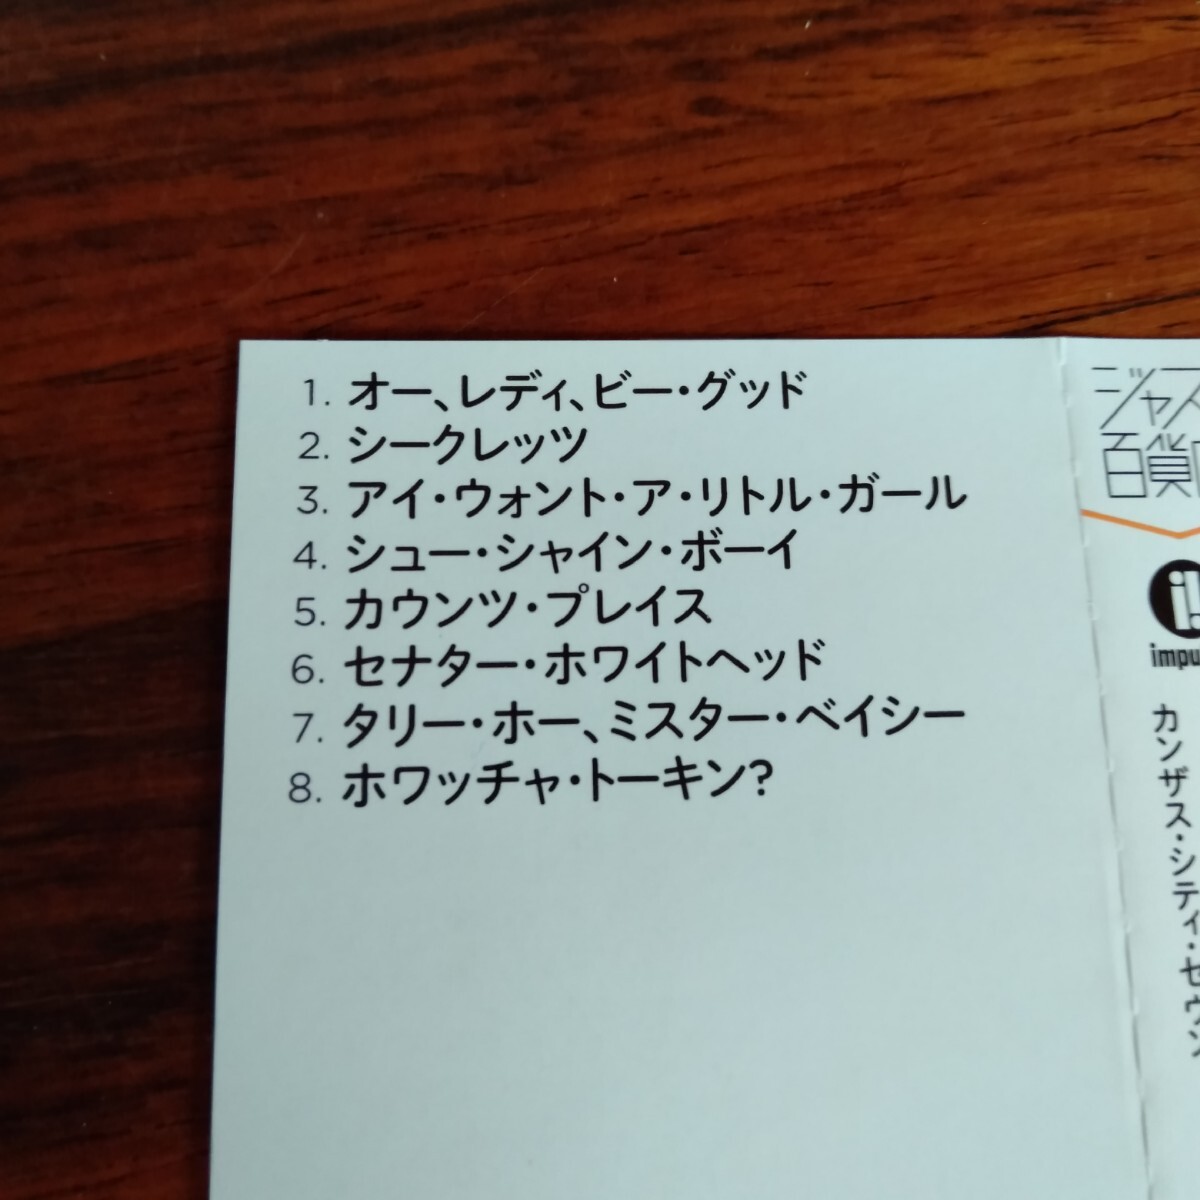 1. オー、レディ、ビー・グッド
2. シークレッツ
3. アイ・ウォント・ア・リトル・ガール
4. シュー・シャイン・ボーイ
5. カウンツ・プレイス
6. セナター・ホワイトヘッド
7. タリー・ホー、ミスター・ベイシー
8. ホワッチャ・トーキン?
ジャズ
百貨
impu
カンザス・シティ・セヴン